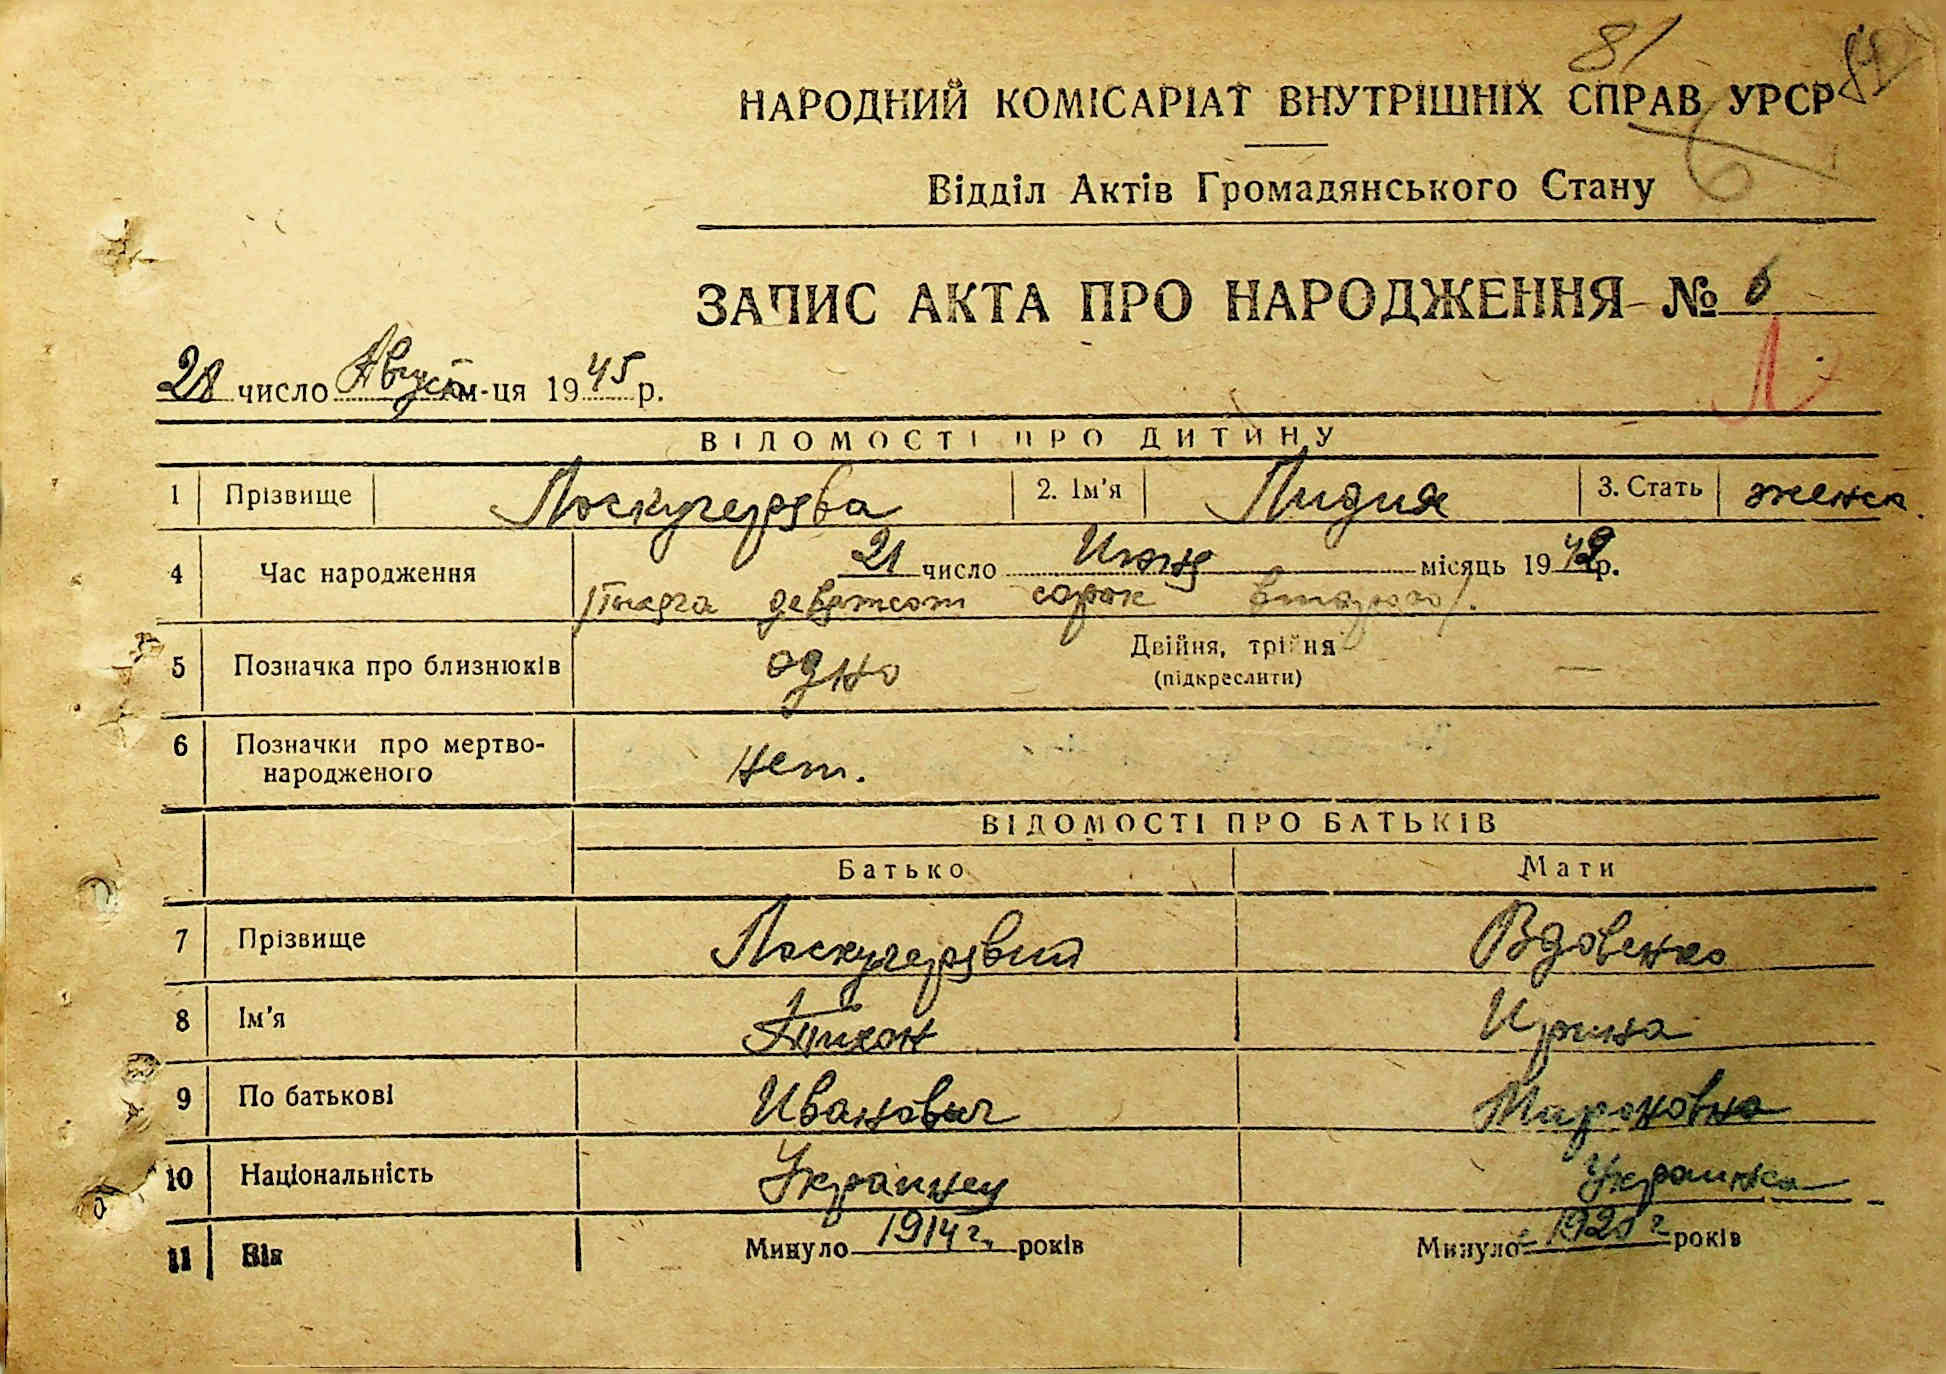 81
НАРОДНИЙ КОМІСАРІАТ ВНУТРІШНІХ СПРАВ УРСР
6
Відділ Актів Громадянського Стану
ЗАПИС АКТА ПРО НАРОДЖЕННЯ № 6
Л
21 число Август м-ця 1945 р.
ВІДОМОСТІ ПРО ДИТИНУ
1 Прізвище Лоскучерява 2. Ім'я Лидия 3. Стать женск.
4 Час народження 21 число Июня місяць 1942 р.
/Тысяча девятсот сорок второго/.
5 Позначка про близнюків одно Двійня, трійня —
(підкреслити)
6 Позначки про мертво-
народженого нет.
ВІДОМОСТІ ПРО БАТЬКІВ
Батько Мати
7 Прізвище Лоскучерявий Вдовенко
8 Ім'я Тихон Ирина
9 По батькові Иванович Мироновна
10 Національність Украинец Украинка
11 Вік Минуло 1914 г. років Минуло 1920 г років